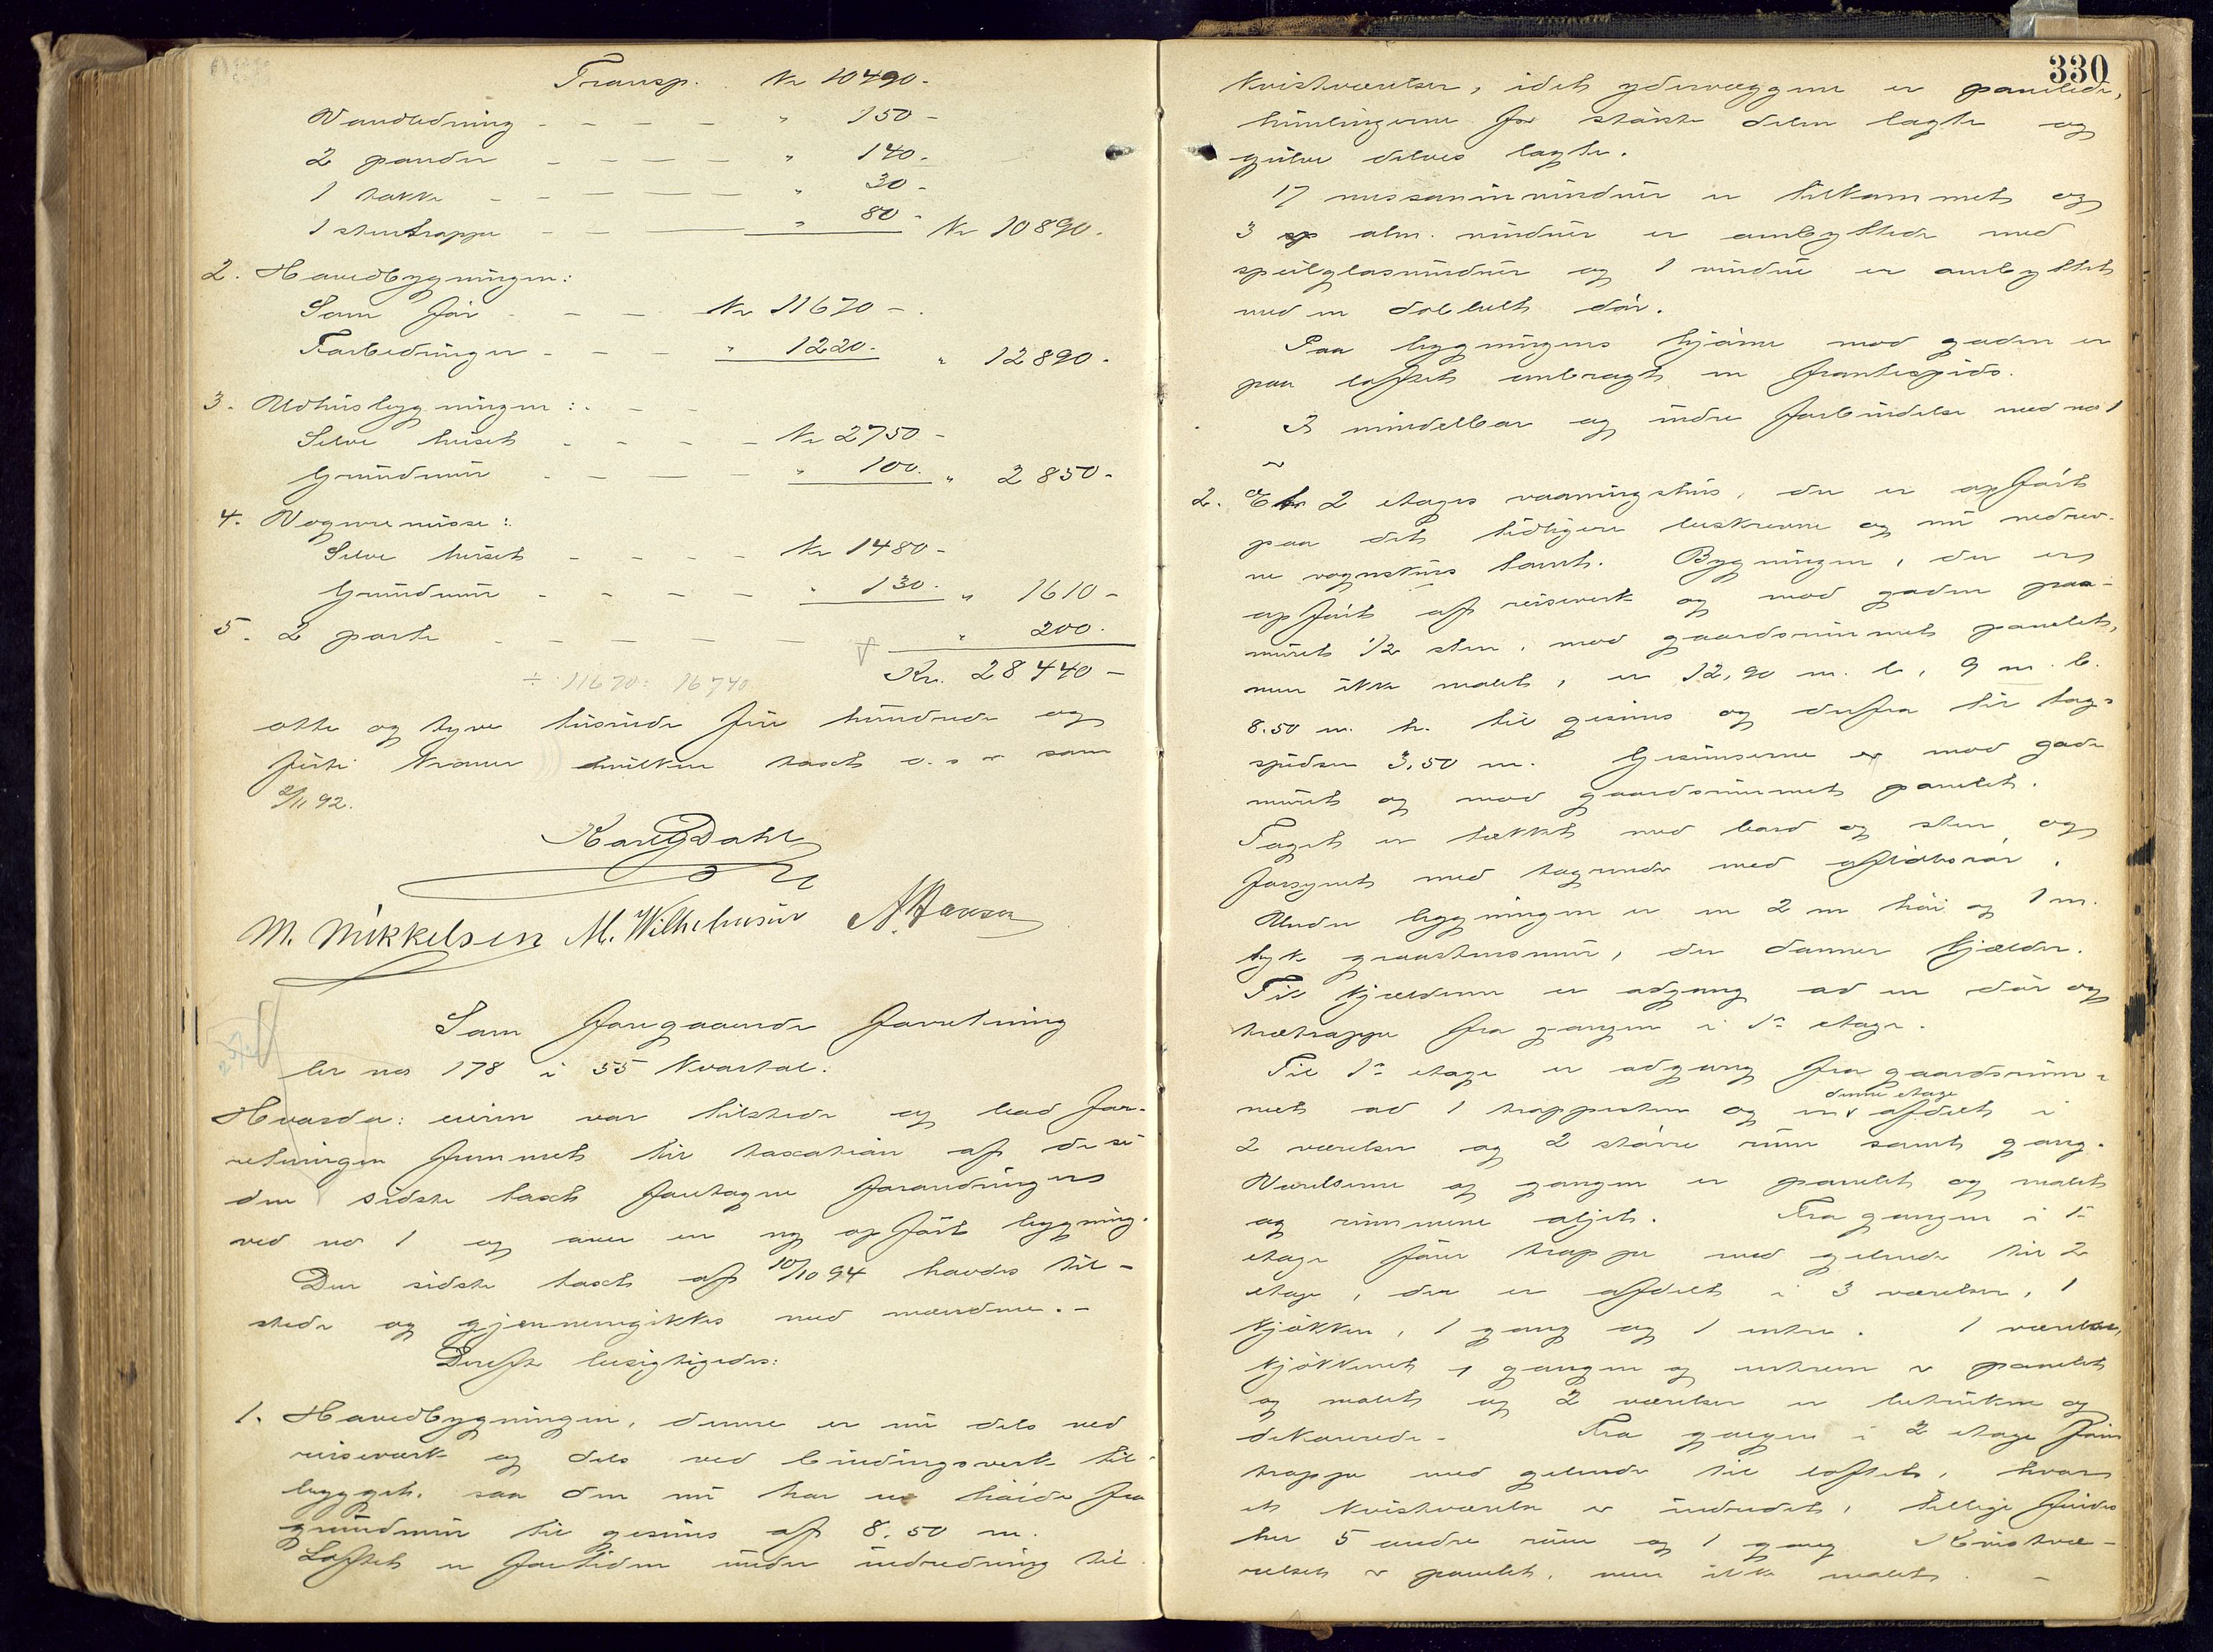 Transp. Kr 10490-
Vandledning - - - - " 150-
2 pander - - - - - " 140-
1 takke - - - - - " 30-
1 stentrappe - - - " 80- Kr 10890-
2. Hovedbygningen:
Som før - - - Kr 11670-
Forbedringer - - - " 1220- " 12890-
3. Udhusbygningen: - -
Selve huset - - - - Kr 2750-
Grundmur - - - - " 100- " 2850-
4. Vognremisse:
Selve huset - - - - Kr 1480-
Grundmur - - - - " 130- " 1610-
5. 2 porte - - - - - " 200-
Kr. 28440-
÷ 11670: 16740
otte og tyve tusinde fire hundrede og
førti kroner hvilken taxt o.s.v. som
2/11 92.
Karl G Dahl
M. Mikkelsen M. Wilhelmsen N. Hansen
Som foregaaende forretning
ler no 178 i 55 Kvartal.
Hvorda: eieren var tilstede og bad for-
retningen fremmet til taxation af de si-
den sidste taxt foretagne forandringer
ved no 1 og over en ny opført bygning.
Den sidste taxt af 10/10 94 havdes til-
stede og gjennemgikkes med mændene. -
Derefter besigtigedes:
1. Hovedbygningen, denne er nu dels ved
reisverk og dels ved bindingsverk til-
bygget, saa den nu har en høide fra
grundmur til gesims af 8.50 m.
Loftet er fortiden under indredning til
330
Kvistværelser, idet ydervæggene er panelede,
himlingerne for største delen lagte og
gulve delvis lagte.
17 vinduer er tilkommet og
3 alm. vinduer er ombyttede med
speilglasvinduer og 1 vindu er ombyttet
med en dobbelt dør.
Paa bygningens hjørne mod gaden er
paa loftet anbragt en frontespids.
I umiddelbar og indre forbindelse med no 1
er
2. Et 2 etages vaaningshus, der er opført
paa det tidligere beskrevne og nu nedrev-
ne vognskurs tomt. Bygningen, der er
opført af reisverk og mod gaden paa-
muret 1/2 sten, mod gaardsrummet panelet,
men ikke malet, er 12,90 m. l., 9 m. b.
8.50 m. h. til gesims og derfra til tag-
spidsen 3,50 m. Gesimserne er mod gade
muret og mod gaardsrummet panelet.
Taget er tækket med bord og sten og
forsynet med tagrende med afløbsrør.
Under bygningen er en 2 m høi og 1 m.
tyk graastensmur, der danner kjælder.
Til kjælderen er adgang ad en dør og
trætrappe fra gangen i 1ste etage.
Til 1ste etage er adgang fra gaardsrum-
met ad 1 trappesten og er denne etage afdelt i
2 værelser og 2 større rum samt gang.
Værelserne og gangen er panelet og malet
og rummene Fra gangen i 1ste
etage fører trappe med gelende til 2
etage, der er afdelt i 3 værelser, 1
kjøkken, 1 gang og 1 entre. 1 værelse,
kjøkkenet, gangen og entreen er panelet
og malet og 2 værelser er betrukne og
dekorerede - Fra gangen i 2 etage fører
trappe med gelende til loftet, hvor
et kvistværelse er indredet, tillige findes
her 5 andre rum og 1 gang Kvistvæ-
relset er panelet, men ikke malet. -